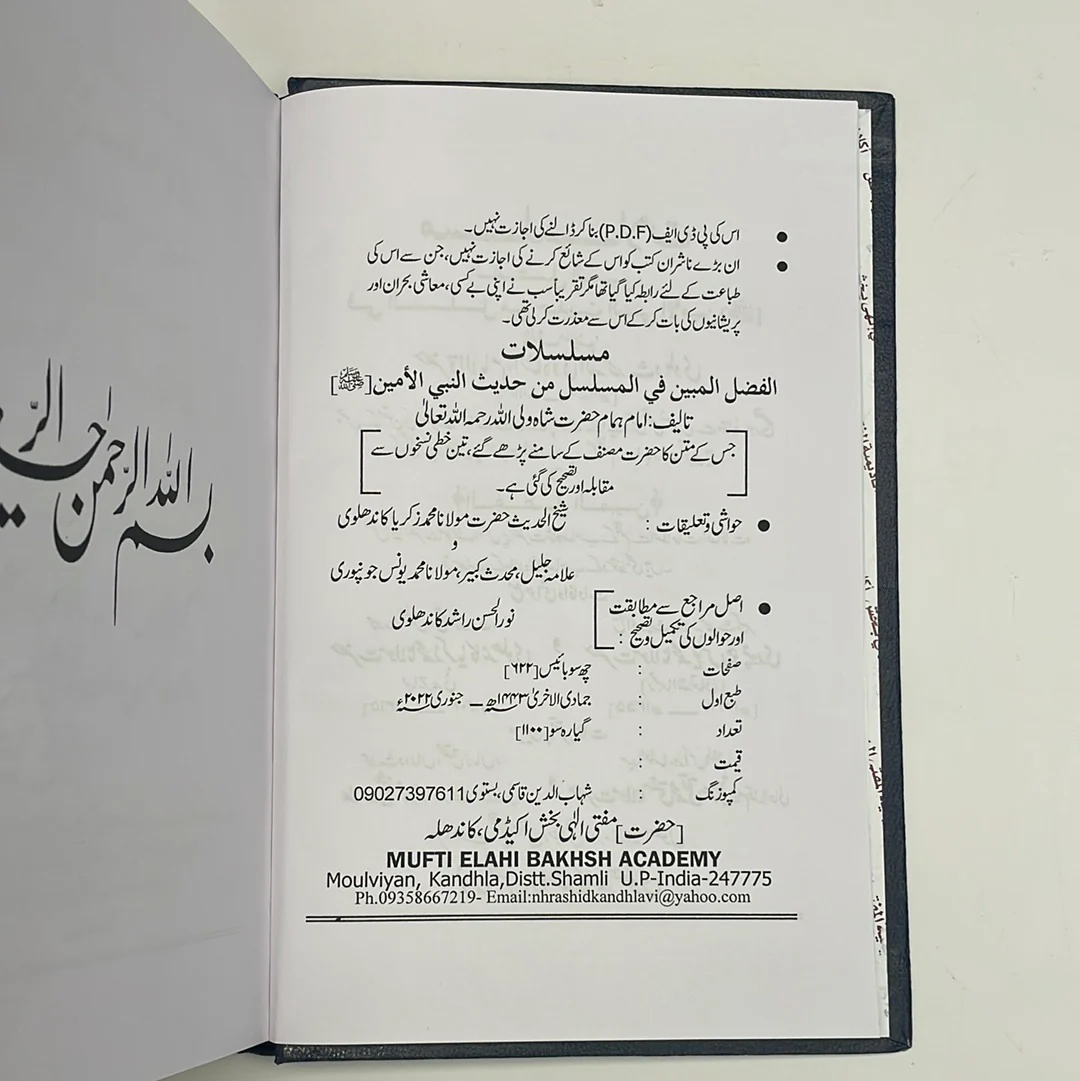 بسم اللہ الرحمن
اس کی پی ڈی ایف (P.D.F) بنا کر ڈالنے کی اجازت نہیں۔
ان بڑے ناشران کتب کو اس کے شائع کرنے کی اجازت نہیں، جن سے اس کی
طباعت کے لئے رابطہ کیا گیا تھا مگر تقریباً سب نے اپنی بے کسی، معاشی بحران اور
پریشانیوں کی بات کر کے اس سے معذرت کر لی تھی۔
مسلسلات
الفضل المبين في المسلسل من حديث النبي الأمين [ﷺ]
تالیف: امام ہمام حضرت شاہ ولی اللہ رحمہ اللہ تعالیٰ
جس کے متن کا حضرت مصنف کے سامنے پڑھے گئے، تین خطی نسخوں سے
مقابلہ اور تصحیح کی گئی ہے۔
حواشی و تعلیقات : شیخ الحدیث حضرت مولانا محمد زکریا کاندھلوی
و
علامہ جلیل، محدث کبیر، مولانا محمد یونس جونپوری
اصل مراجع سے مطابقت
اور حوالوں کی تکمیل و تصحیح : نور الحسن راشد کاندھلوی
صفحات : چھ سو بائیس [۶۲۲]
طبع اول : جمادی الاخریٰ ۱۴۴۳ھ — جنوری ۲۰۲۲ء
تعداد : گیارہ سو [۱۱۰۰]
قیمت :
کمپوزنگ : شہاب الدین قاسمی، بستوی 09027397611
[حضرت] مفتی الٰہی بخش اکیڈمی، کاندھلہ
MUFTI ELAHI BAKHSH ACADEMY
Moulviyan, Kandhla,Distt.Shamli U.P-India-247775
Ph.09358667219- Email:nhrashidkandhlavi@yahoo.com